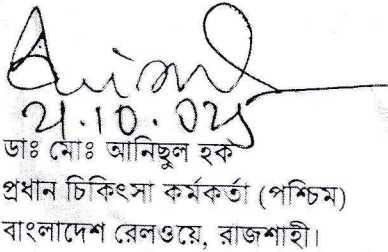 ২১.১০.০৮
ডাঃ মোঃ আনিছুল হক
প্রধান চিকিৎসা কর্মকর্তা (পশ্চিম)
বাংলাদেশ রেলওয়ে, রাজশাহী।